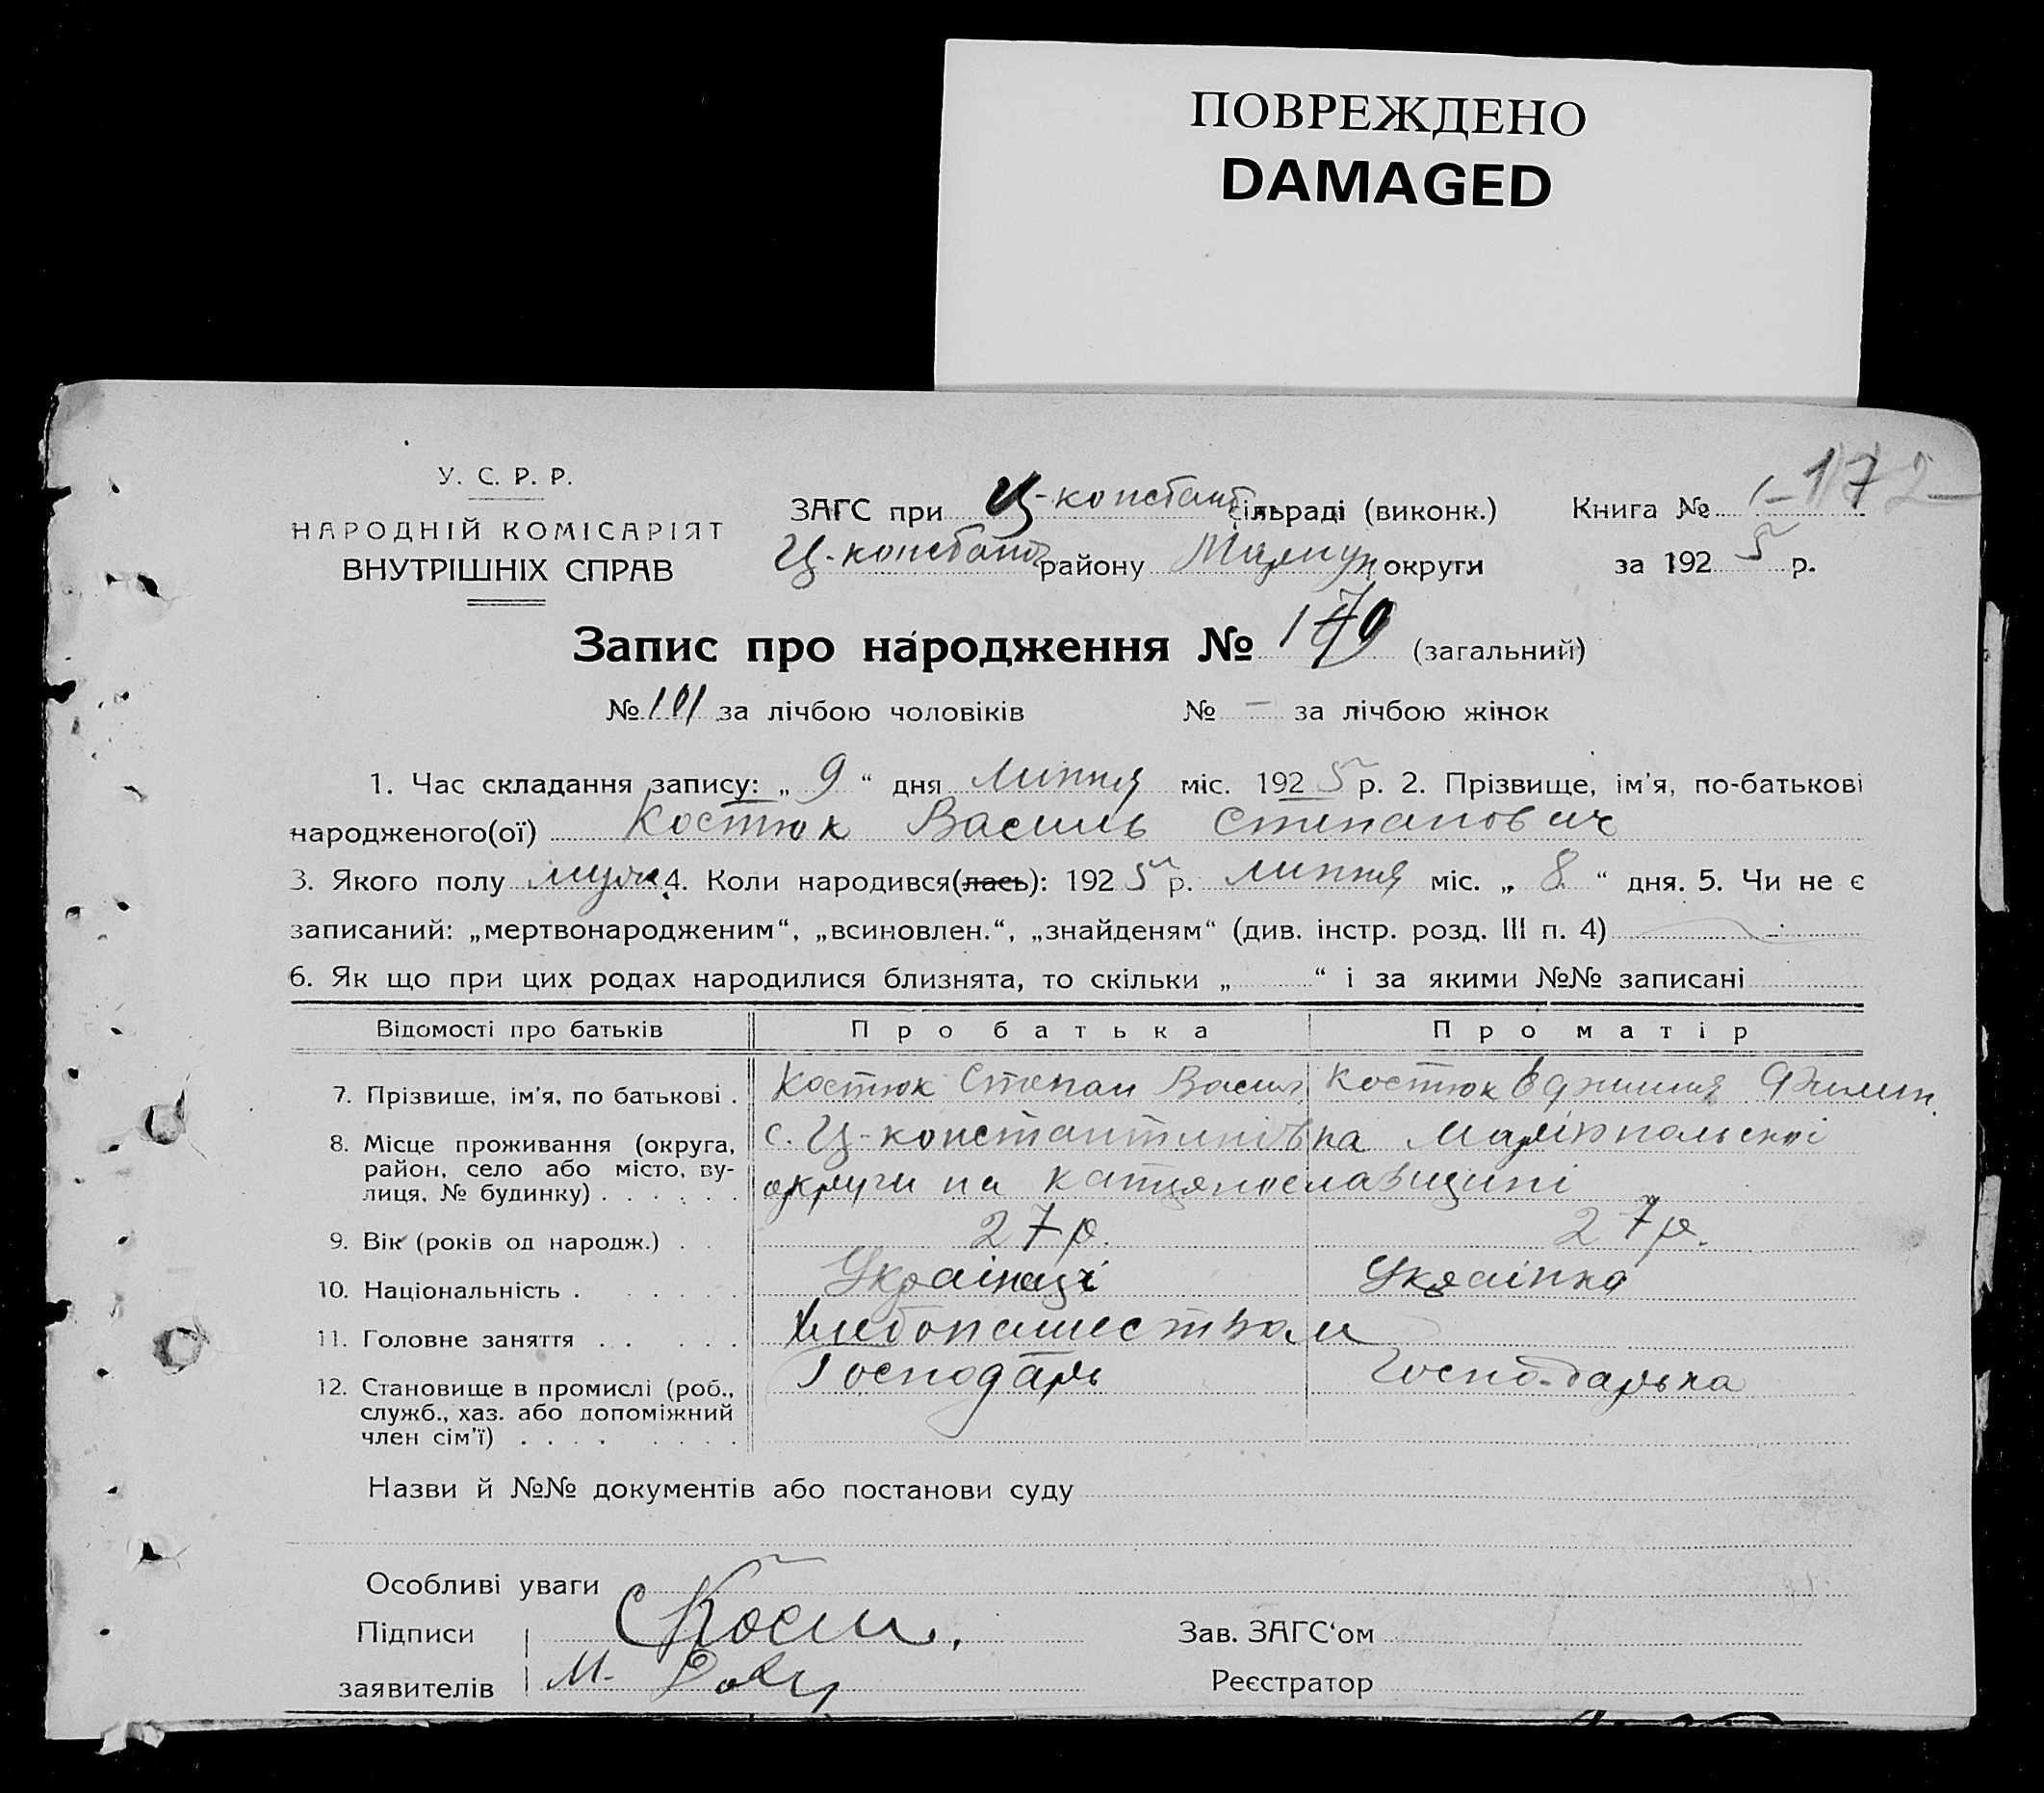 ПОВРЕЖДЕНО
DAMAGED
У. С. Р. Р.
НАРОДНІЙ КОМІСАРІЯТ
ВНУТРІШНІХ СПРАВ
ЗАГС при Ц-констант сільраді (виконк.)
Книга № 1 -172-
Ц-констант району Маріуп округи
за 1925 р.
Запис про народження № 179 (загальний)
№ 101 за лічбою чоловіків № — за лічбою жінок
1. Час складання запису: „ 9 “ дня Липня міс. 1925 р. 2. Прізвище, ім'я, по-батькові
народженого(ої) Костюк Василь Степанович
3. Якого полу муж. 4. Коли народився(лась): 1925 р. липня міс. „ 8 “ дня. 5. Чи не є
записаний: „мертвонародженим“, „всиновлен.“, „знайденям“ (див. інстр. розд. III п. 4)
6. Як що при цих родах народилися близнята, то скільки „ “ і за якими №№ записані
Відомості про батьків Про батька Про матір
7. Прізвище, ім'я, по батькові . Костюк Степан Васил Костюк Филип.
8. Місце проживання (округа, район, село або місто, вулиця, № будинку) . . . . . . с. Ц-константинівка Маріюпольскої
округи на Катеринославщині
9. Вік (років од народж.) . . 27 р. 27 р.
10. Національність . . . . . . Українці Українка
11. Головне заняття . . . . . Хлібопашеством
12. Становище в промислі (роб., служб., хаз. або допоміжний член сім'ї) . . . . . . . . Господарь Господарька
Назви й №№ документів або постанови суду
Особливі уваги
Підписи С Кост.
Зав. ЗАГС‘ом
заявителів М.
Реєстратор